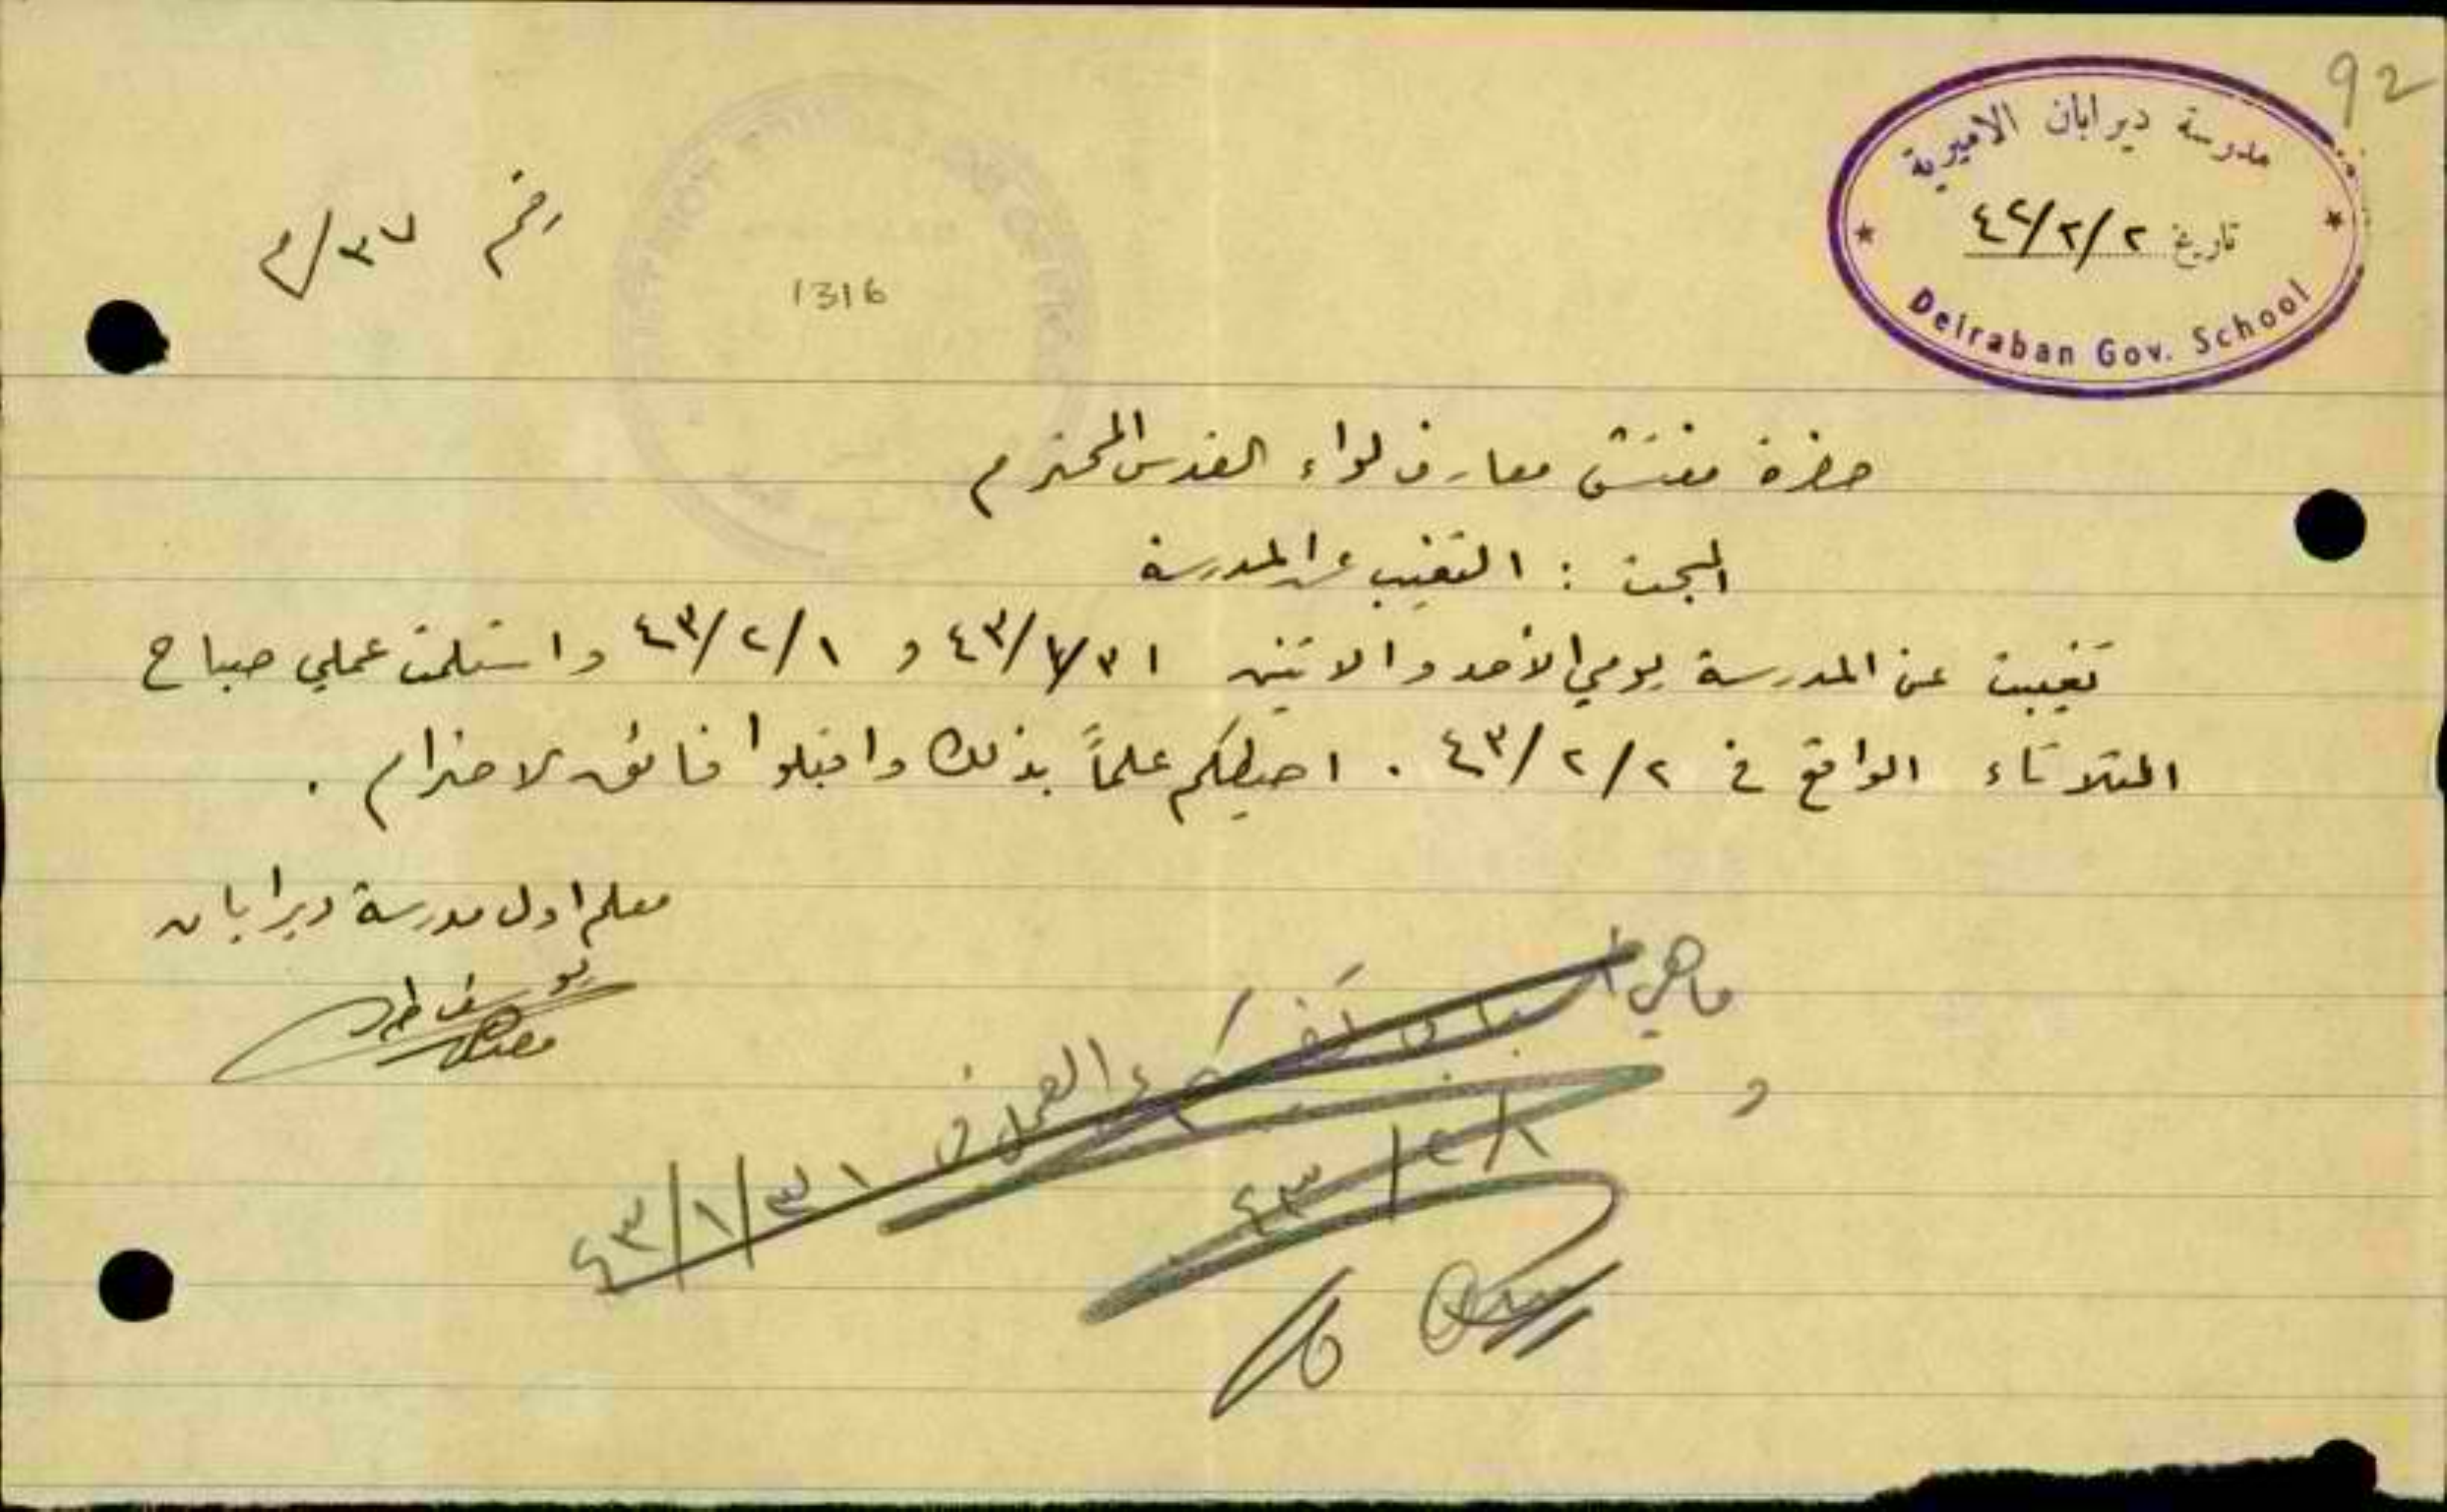 92
مدرسة ديرابان الاميرية
تاريخ ٢/٢/٤٢
Deiraban Gov. School
رقم ٣٧/م
1316
حضرة مفتش معارف لواء القدس المحترم
المبحث : التغيب عن المدرسة
تغيبت عن المدرسة يومي الأحد والاثنين ٤٣/١/٣١ و ٤٣/٢/١ واستلمت عملي صباح
الثلاثاء الواقع في ٤٣/٢/٢ . احيطكم علماً بذلك واقبلوا فائق الاحترام .
معلم اول مدرسة ديرابان
يوسف
ماهي اسباب تغيبكم عن العمل في ٤٣/١/٣١
و